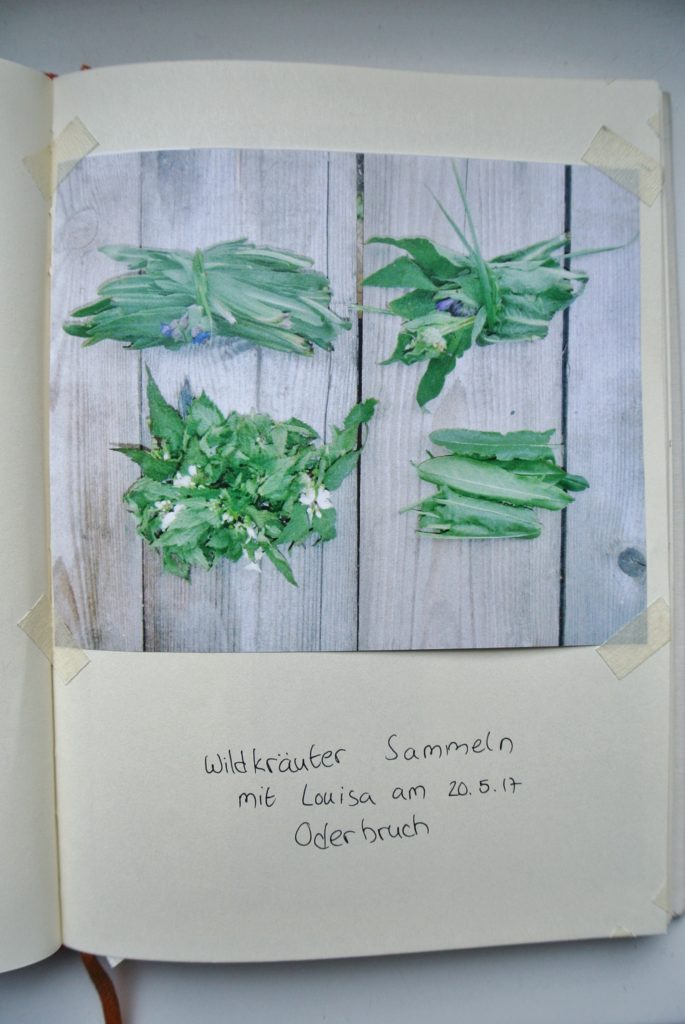 Wildkräuter Sammeln
mit Louisa am 20.5.17
Oderbruch